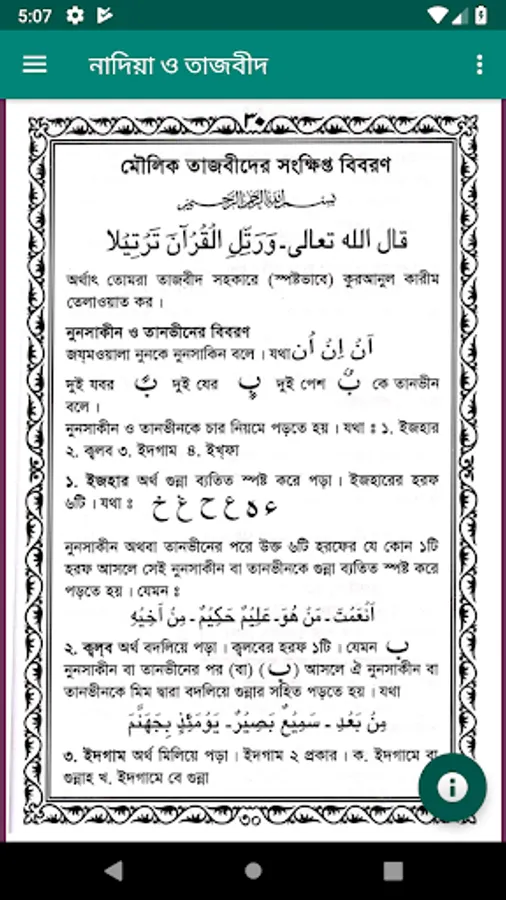 5:07
নাদিয়া ও তাজবীদ
৩০
মৌলিক তাজবীদের সংক্ষিপ্ত বিবরণ
بسم الله الرحمن الرحيم
قال الله تعالى۔وَرَتِّلِ الْقُرْآنَ تَرْتِيْلا
অর্থাৎ তোমরা তাজবীদ সহকারে (স্পষ্টভাবে) কুরআনুল কারীম
তেলাওয়াত কর ।
নুনসাকীন ও তানভীনের বিবরণ
জয্মওয়ালা নুনকে নুনসাকিন বলে । যথা اَنْ اِنْ اُن
দুই যবর بً দুই যের بٍ দুই পেশ بٌ কে তানভীন
বলে ।
নুনসাকীন ও তানভীনকে চার নিয়মে পড়তে হয় । যথা ঃ ১. ইজহার
২. ক্বলব ৩. ইদগাম ৪. ইখ্ফা
১. ইজহার অর্থ গুন্না ব্যতিত স্পষ্ট করে পড়া । ইজহারের হরফ
৬টি । যথা ঃ ء ه ع ح غ خ
নুনসাকীন অথবা তানভীনের পরে উক্ত ৬টি হরফের যে কোন ১টি
হরফ আসলে সেই নুনসাকীন বা তানভীনকে গুন্না ব্যতিত স্পষ্ট করে
পড়তে হয় । যেমন ঃ
اَنْعَمْتَ۔ مَنْ هُوَ۔ عَلِيْمٌ حَكِيْمٌ۔ مِنْ اَخِيْهِ
২. ক্বলব অর্থ বদলিয়ে পড়া । ক্বলবের হরফ ১টি । যেমন ب
নুনসাকীন বা তানভীনের পর (বা) (ب) আসলে ঐ নুনসাকীন বা
তানভীনকে মিম দ্বারা বদলিয়ে গুন্নার সহিত পড়তে হয় । যথা
مِنْ بَعْدِ۔ سَمِيْعٌ بَصِيْرٌ۔ يَوْمَئِذٍ بِجَهَنَّمَ
৩. ইদগাম অর্থ মিলিয়ে পড়া । ইদগাম ২ প্রকার । ক. ইদগামে বা
গুন্নাহ খ. ইদগামে বে গুন্না
৩০